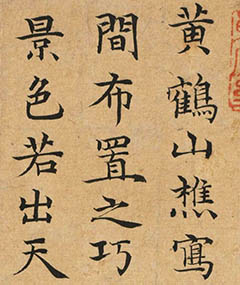 黄鶴山樵寫
間布置之巧
景色若出天